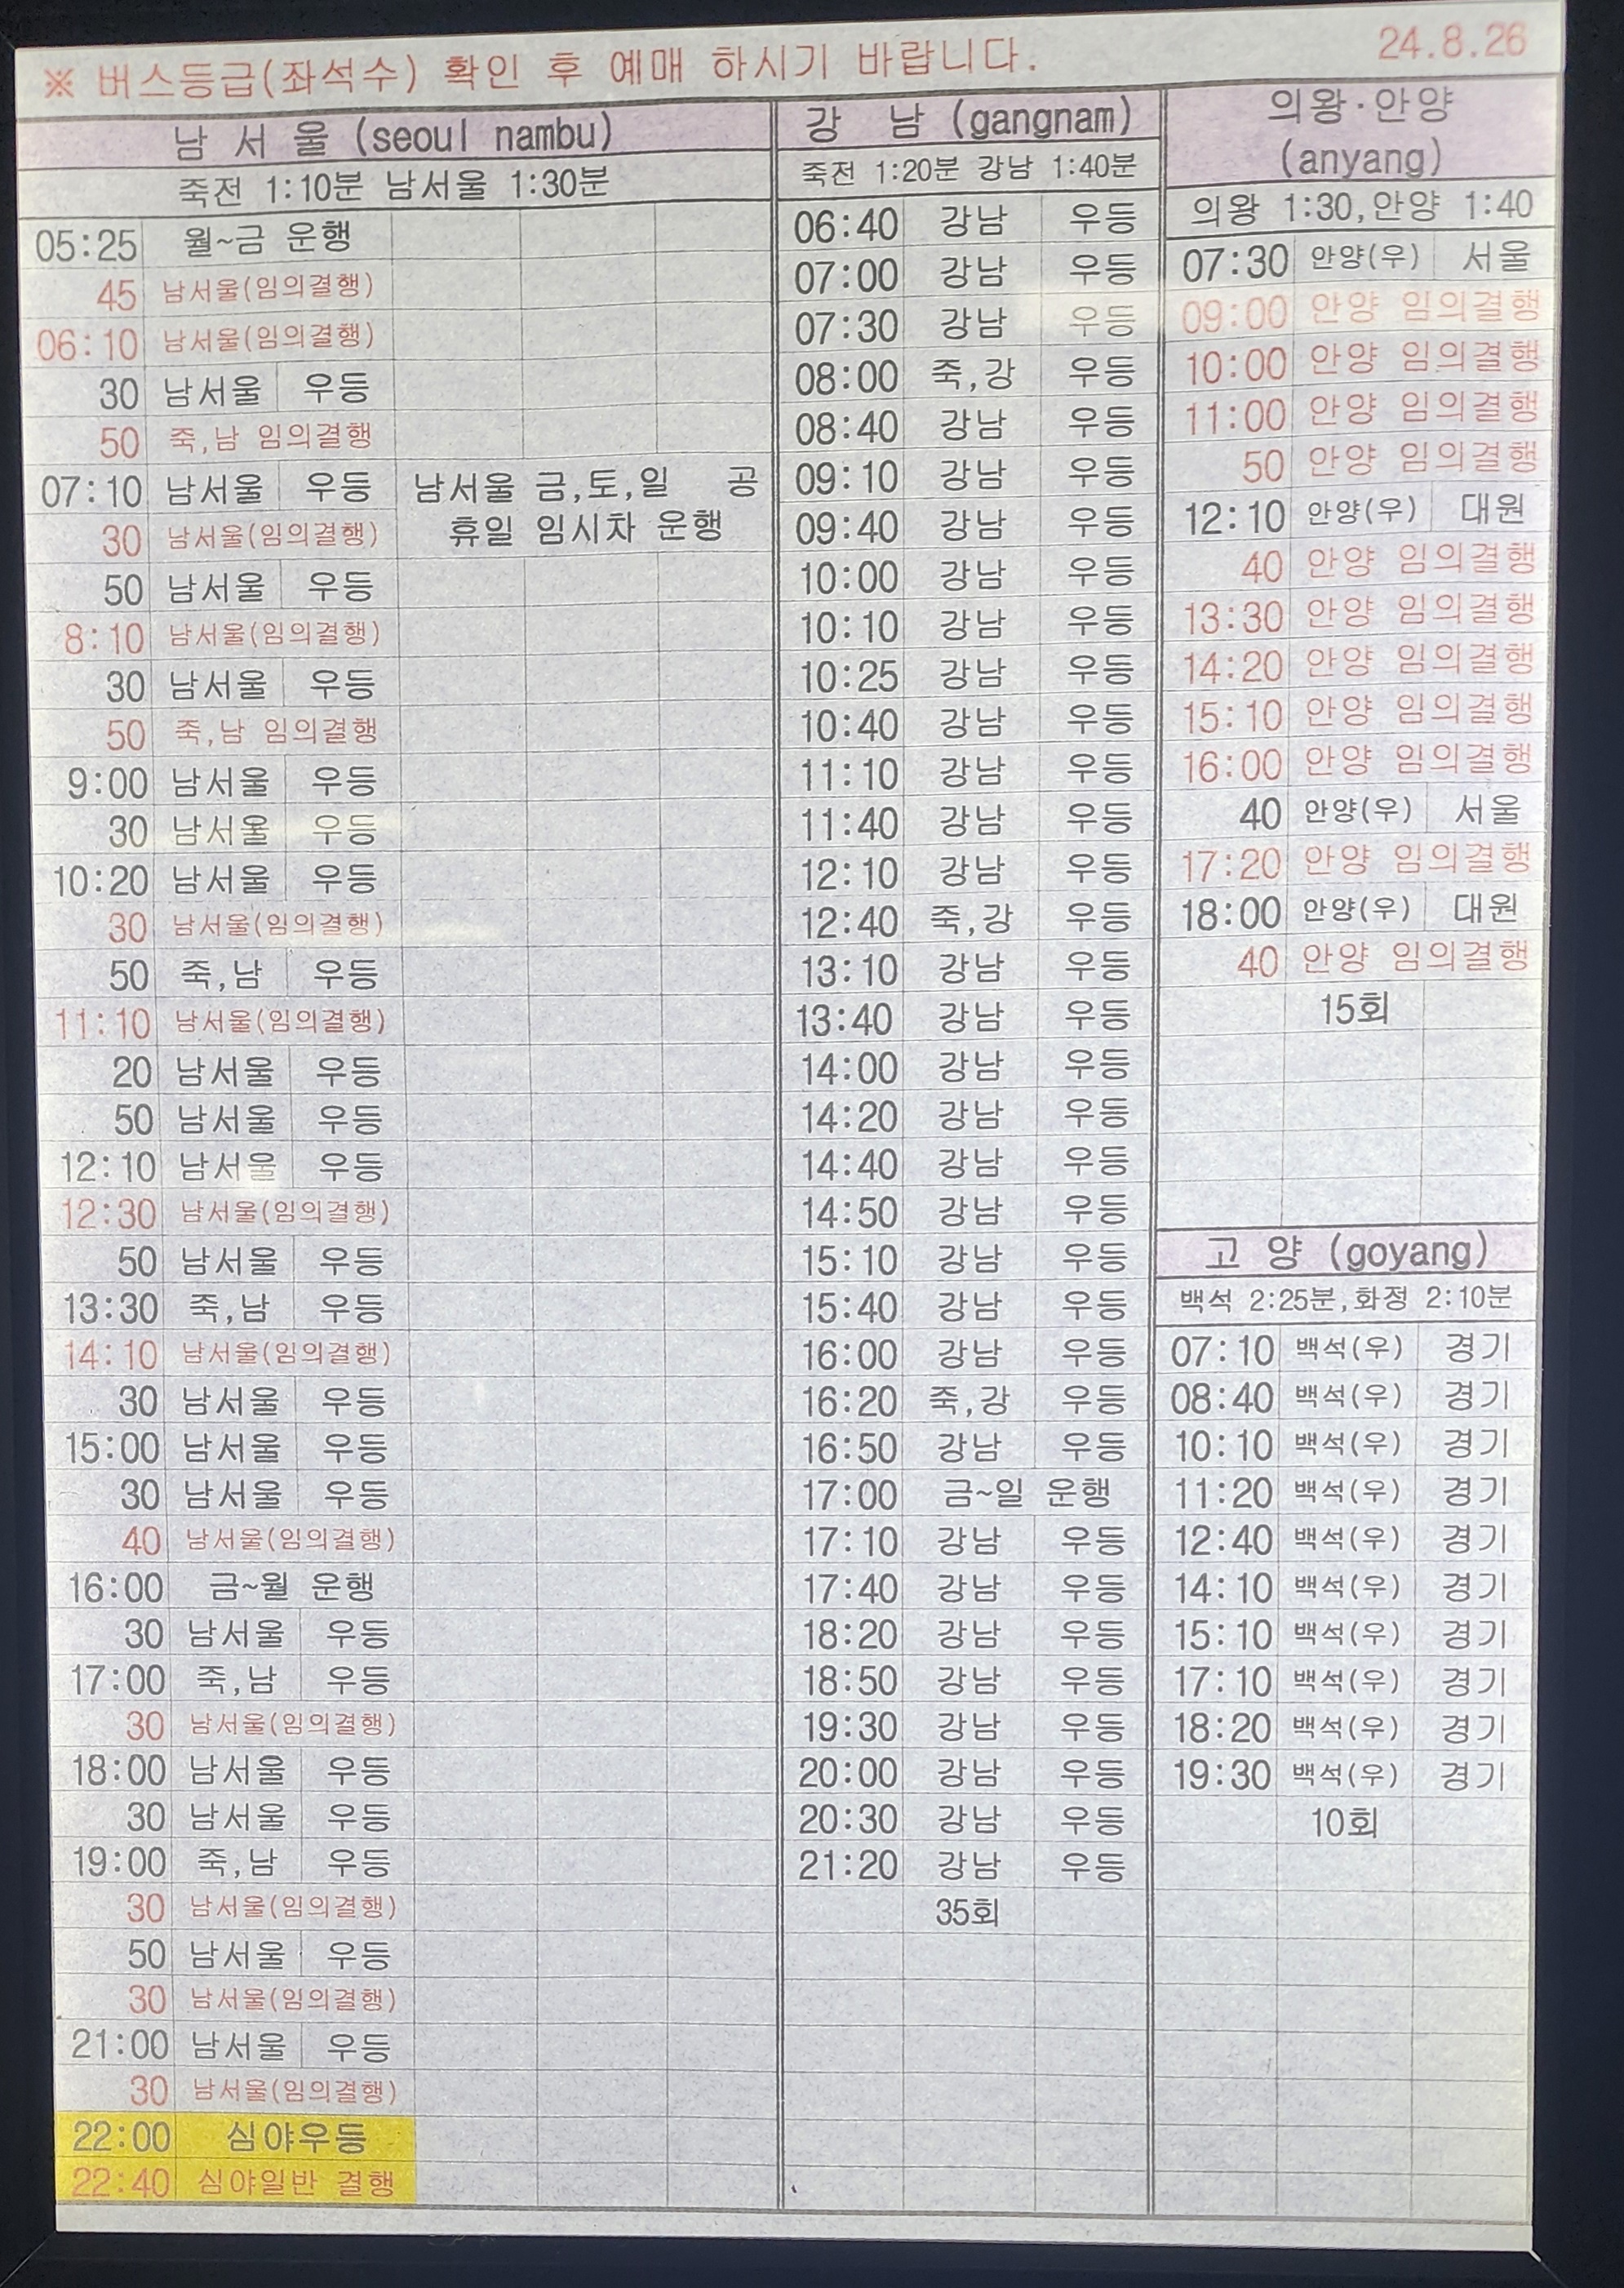 ※ 버스등급(좌석수) 확인 후 예매 하시기 바랍니다.
24.8.26
남 서 울 (seoul nambu)
죽전 1:10분 남서울 1:30분
05:25 월~금 운행
45 남서울(임의결행)
06:10 남서울(임의결행)
30 남서울 우등
50 죽,남 임의결행
07:10 남서울 우등
남서울 금,토,일 공
휴일 임시차 운행
30 남서울(임의결행)
50 남서울 우등
8:10 남서울(임의결행)
30 남서울 우등
50 죽,남 임의결행
9:00 남서울 우등
30 남서울 우등
10:20 남서울 우등
30 남서울(임의결행)
50 죽,남 우등
11:10 남서울(임의결행)
20 남서울 우등
50 남서울 우등
12:10 남서울 우등
12:30 남서울(임의결행)
50 남서울 우등
13:30 죽,남 우등
14:10 남서울(임의결행)
30 남서울 우등
15:00 남서울 우등
30 남서울 우등
40 남서울(임의결행)
16:00 금~월 운행
30 남서울 우등
17:00 죽,남 우등
30 남서울(임의결행)
18:00 남서울 우등
30 남서울 우등
19:00 죽,남 우등
30 남서울(임의결행)
50 남서울 우등
30 남서울(임의결행)
21:00 남서울 우등
30 남서울(임의결행)
22:00 심야우등
22:40 심야일반 결행
강 남 (gangnam)
죽전 1:20분 강남 1:40분
06:40 강남 우등
07:00 강남 우등
07:30 강남 우등
08:00 죽,강 우등
08:40 강남 우등
09:10 강남 우등
09:40 강남 우등
10:00 강남 우등
10:10 강남 우등
10:25 강남 우등
10:40 강남 우등
11:10 강남 우등
11:40 강남 우등
12:10 강남 우등
12:40 죽,강 우등
13:10 강남 우등
13:40 강남 우등
14:00 강남 우등
14:20 강남 우등
14:40 강남 우등
14:50 강남 우등
15:10 강남 우등
15:40 강남 우등
16:00 강남 우등
16:20 죽,강 우등
16:50 강남 우등
17:00 금~일 운행
17:10 강남 우등
17:40 강남 우등
18:20 강남 우등
18:50 강남 우등
19:30 강남 우등
20:00 강남 우등
20:30 강남 우등
21:20 강남 우등
35회
의왕·안양
(anyang)
의왕 1:30,안양 1:40
07:30 안양(우) 서울
09:00 안양 임의결행
10:00 안양 임의결행
11:00 안양 임의결행
50 안양 임의결행
12:10 안양(우) 대원
40 안양 임의결행
13:30 안양 임의결행
14:20 안양 임의결행
15:10 안양 임의결행
16:00 안양 임의결행
40 안양(우) 서울
17:20 안양 임의결행
18:00 안양(우) 대원
40 안양 임의결행
15회
고 양 (goyang)
백석 2:25분,화정 2:10분
07:10 백석(우) 경기
08:40 백석(우) 경기
10:10 백석(우) 경기
11:20 백석(우) 경기
12:40 백석(우) 경기
14:10 백석(우) 경기
15:10 백석(우) 경기
17:10 백석(우) 경기
18:20 백석(우) 경기
19:30 백석(우) 경기
10회